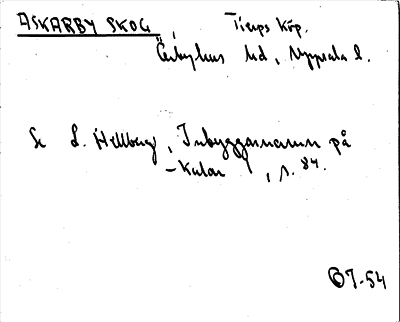 ASKARBY SKOG, Tierps köp.
Örbyhus hd, Uppsala l.
Se L. Hellberg, Inbyggarnamn på
-karlar, s. 84.
BJ-54